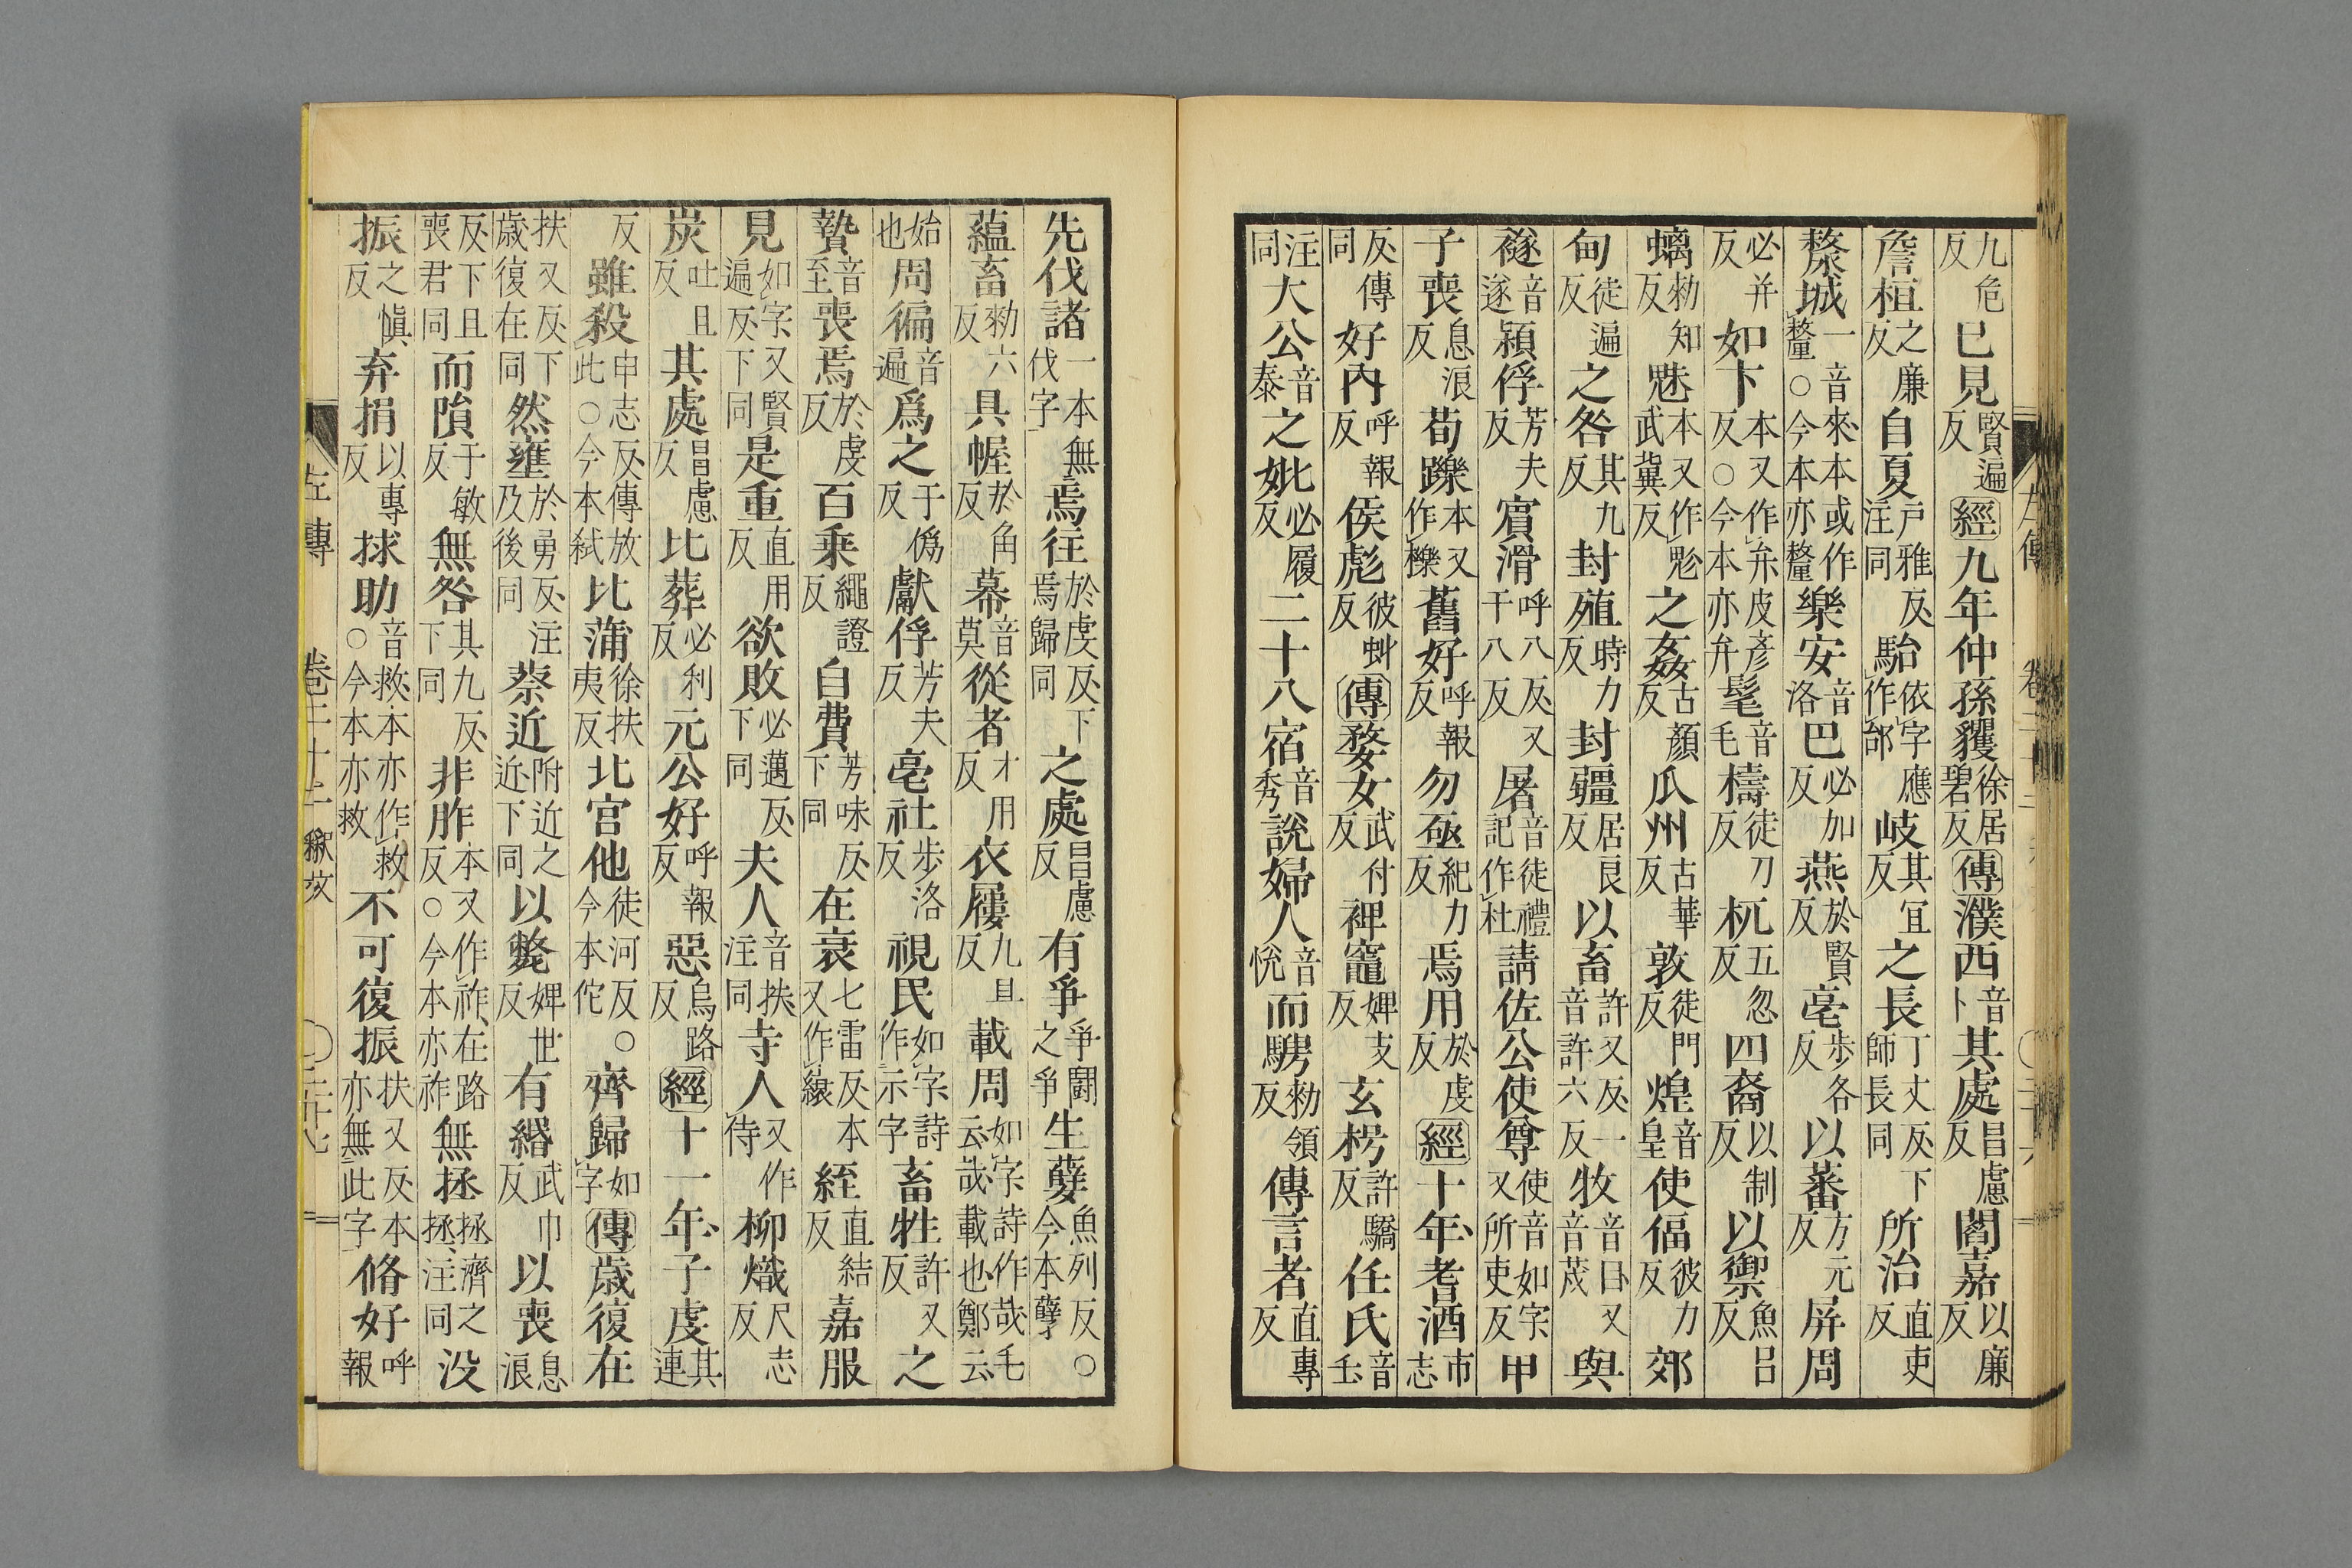 左傳
九危反已見賢遍反經九年仲孫貜徐居碧反傳濮西音卜其處昌慮反閻嘉以廉反
詹桓之廉反自夏戶雅反注同駘依字應作邰岐其宜反之長丁丈反下師長同所治直吏反
斄城一音來本或作釐○今本亦釐樂安音洛巴必加反燕於賢反亳步各反以蕃方元反屏周
必并反如卞本又作弁皮彥反○今本亦弁髦音毛檮徒刀反杌五忽反四裔以制反以禦魚呂反
螭勑知反魅本又作鬽武冀反之姦古顏反瓜州古華反敦徒門反煌音皇使偪彼力反郊
甸徒遍反之咎其九反封殖時力反封疆居良反以畜許又反一音許六反牧音目又音茂與
襚音遂潁俘芳夫反賓滑呼八反又干八反屠音徒禮記作杜請佐公使尊使音如字又所吏反甲
子喪息浪反荀躒本又作櫟舊好呼報反勿亟紀力反焉用於虔反經十年耆酒市志
反傳同好內呼報反侯彪彼虯反傳婺女武付反裨竈婢支反玄枵許驕反任氏音壬
注同大公音泰之妣必履反二十八宿音秀說婦人音悅而騁勑領反傳言者直專反
先伐諸一本無伐字焉往於虔反下焉歸同之處昌慮反有爭爭鬭之爭生孽魚列反○今本孽
蘊畜勑六反具幄於角反幕音莫從者才用反衣屨九具反載周如字詩作哉毛云哉載也鄭云
始也周徧音遍爲之于僞反獻俘芳夫反亳社步洛反視民如字詩作示字畜牲許又反之
贄音至喪焉於虔反百乘繩證反自費芳味反下同在衰七雷反本又作縗絰直結反嘉服
見如字又賢遍反下同是重直用反欲敗必邁反下同夫人音扶注同寺人又作侍柳熾尺志反
炭吐且反其處昌慮反比葬必利反元公好呼報反惡烏路反經十一年子虔其連
反雖殺申志反傳放此○今本弒比蒲徐扶夷反北宮他徒河反○今本佗齊歸如字傳歲復在
扶又反下歲復在同然壅於勇反注及後同蔡近附近之近下同以斃婢世反有緡武巾反以喪息浪
反下且喪君同而隕于敏反無咎其九反下同非胙本又作祚在路反○今本亦祚無拯拯濟之拯注同没
振之愼反弃捐以專反捄助音救本亦作救○今本亦救不可復振扶又反本亦無此字脩好呼報
左傳 卷三十二 釋文